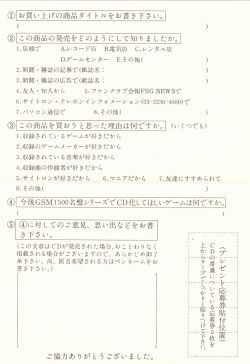 ①お買い上げの商品タイトルをお書き下さい。
(　　　)
②この商品の発売をどのようにして知りましたか。
1.店頭で　A.レコード店　B.電気店　C.レンタル店
D.ゲームセンター　E.その他(　　　)
2.新聞・雑誌の記事で(紙誌名：　　　)
3.新聞・雑誌の広告で(紙誌名：　　　)
4.友人・知人から　5.ファンクラブ会報FSG NEWSで
6.サイトロン・テレホンインフォメーション(03-3236-4000)で
7.パソコン通信で　8.その他(　　　)
③この商品を買おうと思った理由は何ですか。(いくつでも)
1.収録されているゲームが好きだから
2.収録のゲームメーカーが好きだから
3.収録されている音楽が好きだから
4.収録曲の作曲者が好きだから
5.サイトロンが好きだから　6.マニアだから　7.友達にすすめられて
8.その他(　　　)
④今後GSM1500名盤シリーズでCD化してほしいゲームは何ですか。
(　　　)
⑤④に対してのご意見、思い出などをお書
き下さい。
(この文章はCDが発売された場合、おことわりなく
掲載される場合がございますので、あらかじめ御了
承下さい。尚、匿名希望される方はペンネームをお
書き下さい。)
〈プレゼント応募券貼付位置〉
CDの帯裏についている応募券を
上からテープでしっかり貼りつけて下さい。
ご協力ありがとうございました。